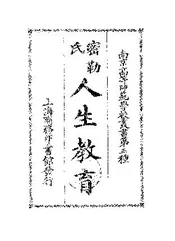 南京高等師範學校叢書第五種
密勒氏
人生教育
上海商務印書館發行